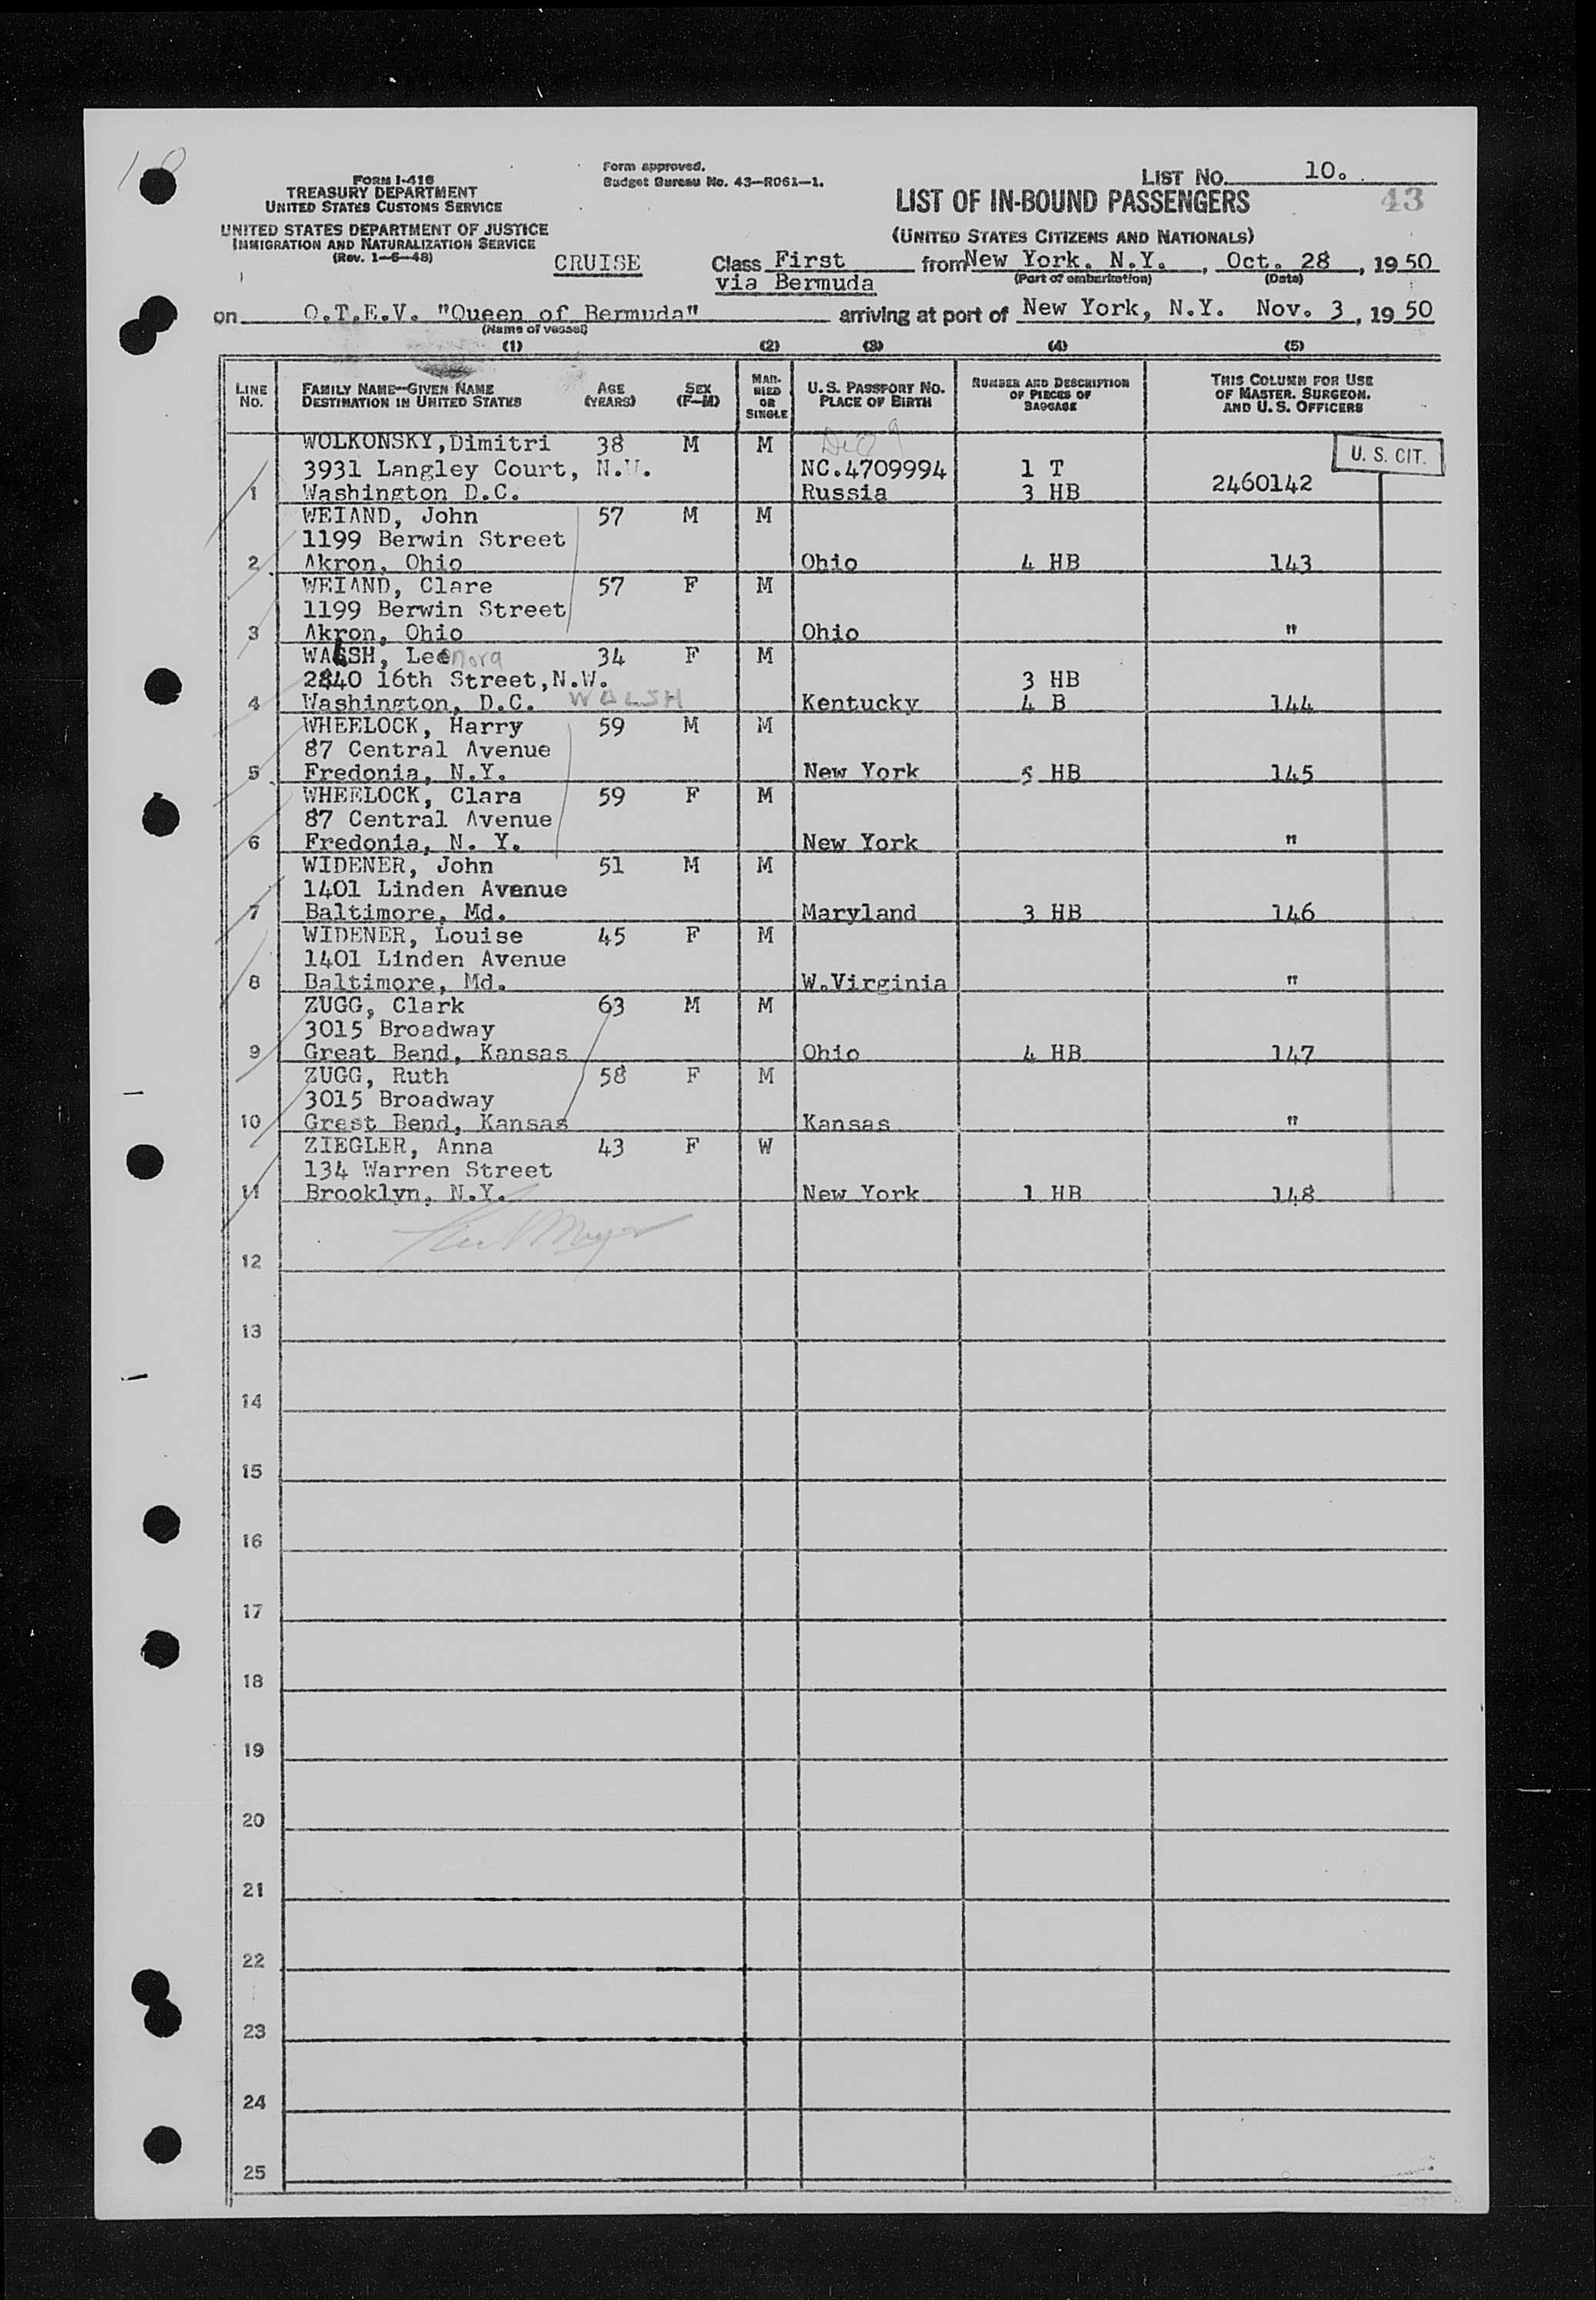 FORM I-416
TREASURY DEPARTMENT
UNITED STATES CUSTOMS SERVICE
UNITED STATES DEPARTMENT OF JUSTICE
IMMIGRATION AND NATURALIZATION SERVICE
(Rev. 1-6-48)
Form approved.
Budget Bureau No. 43-R061-1.
LIST No. 10.
LIST OF IN-BOUND PASSENGERS
43
(UNITED STATES CITIZENS AND NATIONALS)
CRUISE Class First from New York. N.Y., Oct. 28, 1950
via Bermuda (Port of embarkation) (Date)
on O.T.E.V. "Queen of Bermuda" arriving at port of New York, N.Y. Nov. 3, 1950
(Name of vessel)
(1) (2) (3) (4) (5)
LINE No. FAMILY NAME—GIVEN NAME DESTINATION IN UNITED STATES AGE (YEARS) SEX (F—M) MARRIED OR SINGLE U.S. PASSPORT No. PLACE OF BIRTH NUMBER AND DESCRIPTION OF PIECES OF BAGGAGE THIS COLUMN FOR USE OF MASTER. SURGEON. AND U.S. OFFICERS
WOLKONSKY,Dimitri 38 M M U. S. CIT.
3931 Langley Court, N.W. NC.4709994 1 T
1 Washington D.C. Russia 3 HB 2460142
WEIAND, John 57 M M
1199 Berwin Street
2 Akron, Ohio Ohio 4 HB 143
WEIAND, Clare 57 F M
1199 Berwin Street
3 Akron, Ohio Ohio "
WALSH, Leenora 34 F M
2840 16th Street,N.W. 3 HB
4 Washington, D.C. WALSH Kentucky 4 B 144
WHEELOCK, Harry 59 M M
87 Central Avenue
5 Fredonia, N.Y. New York 5 HB 145
WHEELOCK, Clara 59 F M
87 Central Avenue
6 Fredonia, N. Y. New York "
WIDENER, John 51 M M
1401 Linden Avenue
7 Baltimore, Md. Maryland 3 HB 146
WIDENER, Louise 45 F M
1401 Linden Avenue
8 Baltimore, Md. W.Virginia "
ZUGG, Clark 63 M M
3015 Broadway
9 Great Bend, Kansas Ohio 4 HB 147
ZUGG, Ruth 58 F M
3015 Broadway
10 Grest Bend, Kansas Kansas "
ZIEGLER, Anna 43 F W
134 Warren Street
11 Brooklyn, N.Y. New York 1 HB 148
12
13
14
15
16
17
18
19
20
21
22
23
24
25